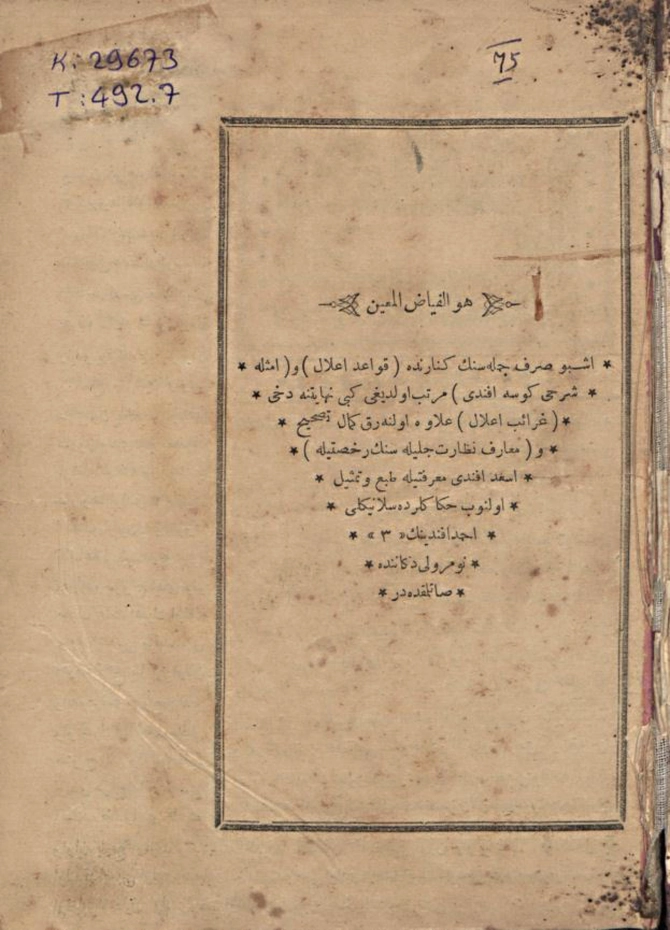 K: 29673
T: 492.7
75
هو الفیاض المعین
* اشبو صرف جمله سنك كنارنده ( قواعد اعلال ) و ( امثله *
* شرحی كوسه افندی ) مرتب اولدیغی كبی نهایتنه دخی *
* ( غرائب اعلال ) علاوه اولنه رق كمال تصحیح *
* و ( معارف نظارت جلیله سنك رخصتیله ) *
* اسعد افندی معرفتیله طبع وتمثیل *
* اولنوب حكاكلرده سلانیكلی *
* احمد افندینك « ۳ » *
* نومرولی دكاننده *
* صاتلقده در *